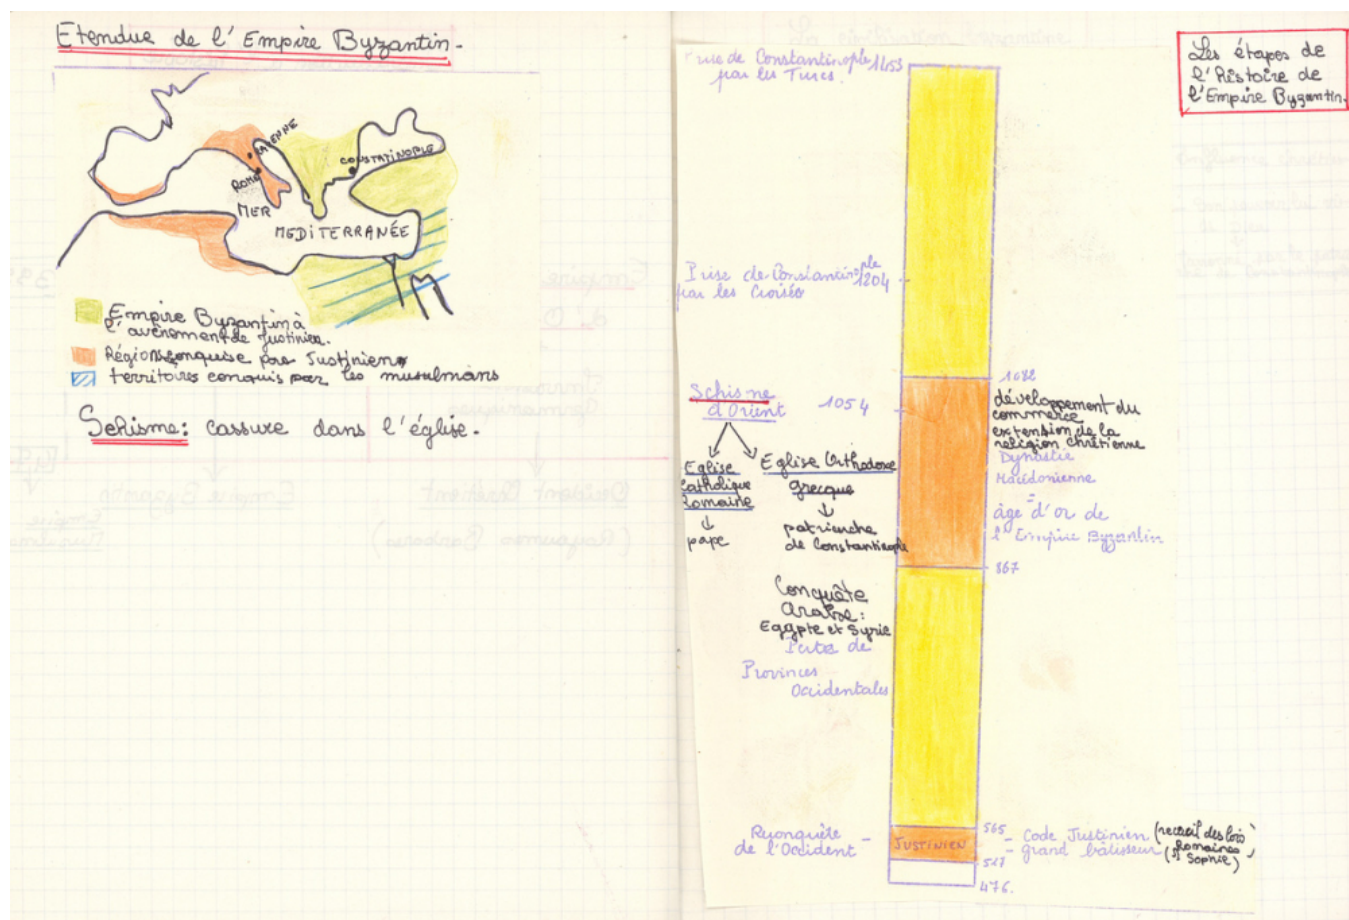 Etendue de l'Empire Byzantin.
RAVENNE
ROME
CONSTATINOPLE
MER
MEDITERRANÉE
Empire Byzantin à
l'avènement de Justinien.
Régions conquise par Justinien
territoires conquis par les musulmans
Schisme: cassure dans l'église.
Les étapes de
l'Histoire de
l'Empire Byzantin.
Prise de Constantinople 1453
par les Turcs.
Prise de Constantinople 1204
par les Croisés
Schisme
d'Orient
1054
Eglise
Catholique
Romaine
pape
Eglise Orthodoxe
grecque
patriarche
de Constantinople
développement du
commerce
extension de la
religion chrétienne
Dynastie
Macédonienne
=
âge d'or de
l'Empire Byzantin
867
Conquête
arabe:
Egypte et Syrie
Pertes de
Provinces
Occidentales
565
Reconquête
de l'Occident -
JUSTINIEN
- Code Justinien (recueil des lois
Romaines)
- grand bâtisseur (St Sophie)
527
476.